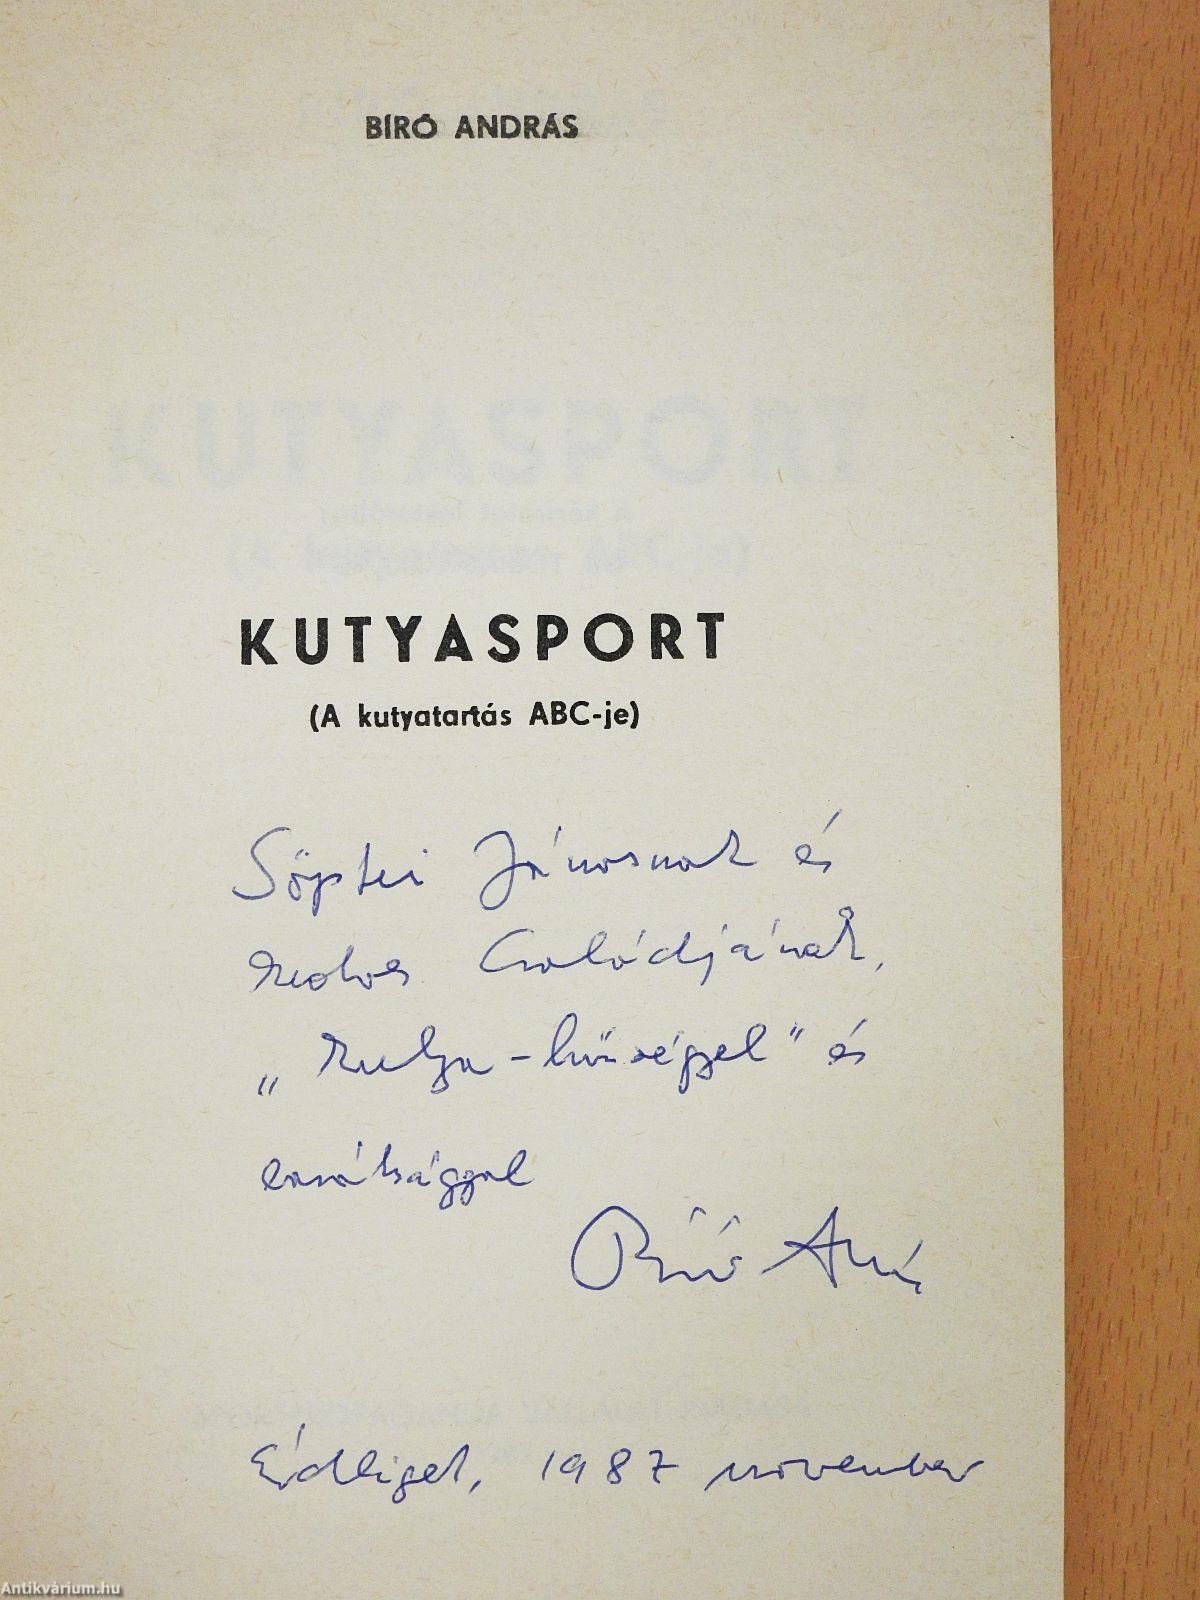 BÍRÓ ANDRÁS
KUTYASPORT
(A kutyatartás ABC-je)
Söptei Jánosnak és
kedves Családjának,
„kutya-hűséggel” és
barátsággal
Bíró András
Érdliget, 1987 november
Antikvárium.hu